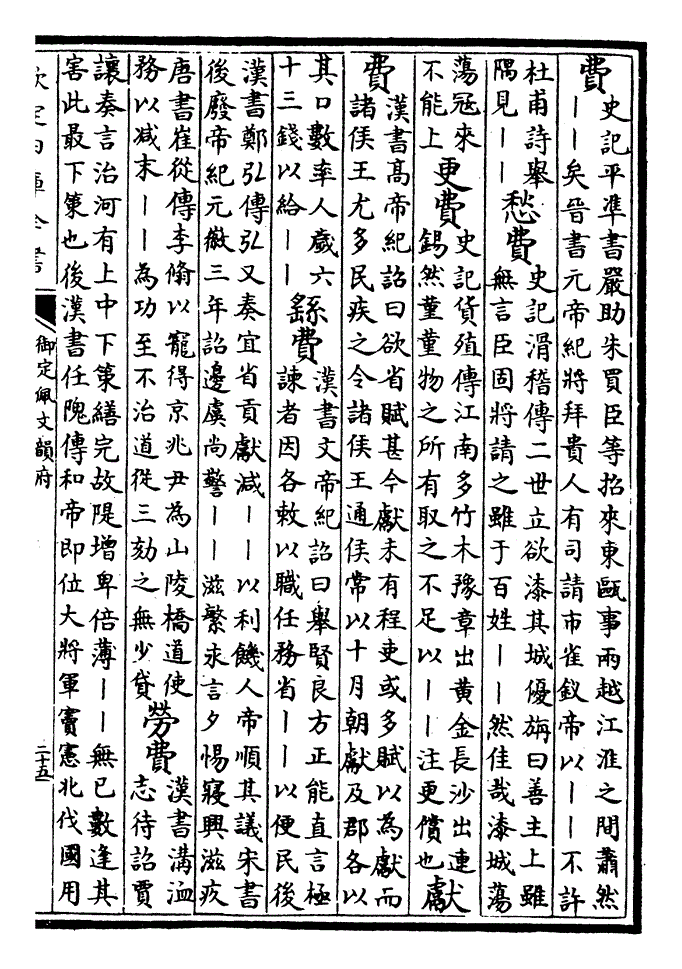 費
史記平準書嚴助朱買臣等招來東甌事兩越江淮之間蕭然
——矣晉書元帝紀將拜貴人有司請市雀釵帝以——不許
杜甫詩舉
隅見——
愁費
史記滑稽傳二世立欲漆其城優旃曰善主上雖
無言臣固將請之雖于百姓——然佳哉漆城蕩
蕩冠來
不能上
更費
史記貨殖傳江南多竹木豫章出黄金長沙出連
錫然堇堇物之所有取之不足以——注更償也
獻
費
漢書高帝紀詔曰欲省賦甚今獻未有程吏或多賦以為獻而
諸侯王尤多民疾之令諸侯王通侯常以十月朝獻及郡各以
其口數率人歲六
十三錢以給——
繇費
漢書文帝紀詔曰舉賢良方正能直言極
諫者因各敕以職任務省——以便民後
漢書鄭弘傳弘又奏宜省貢獻減——以利饑人帝順其議宋書
後廢帝紀元徽三年詔邊虞尚警——滋繁永言夕惕寢興滋疚
唐書崔從傳李翛以寵得京兆尹為山陵橋道使
務以减末——為功至不治道從三劾之無少貸
勞費
漢書溝洫
志待詔賈
讓奏言治河有上中下策繕完故隄增卑倍薄——無已數逢其
害此最下策也後漢書任隗傳和帝即位大將軍竇憲北伐國用
欽定四庫全書
御定佩文韻府
二十五